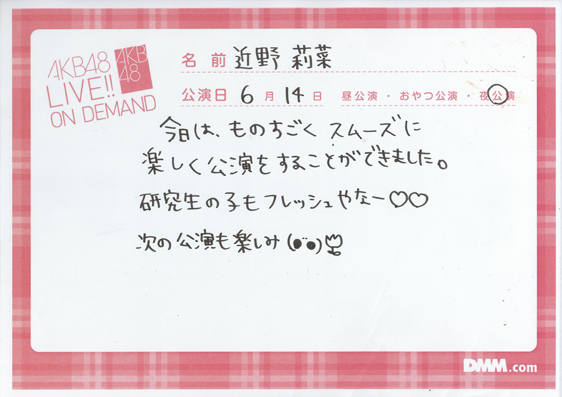 AKB48
LIVE!!
ON DEMAND
AKB
48
名前 近野 莉菜
公演日 6月14日 昼公演・おやつ公演・夜公演
今日は、ものすごく スムーズに
楽しく公演をすることができました。
研究生の子もフレッシュやなー♡♡
次の公演も楽しみ(•••)
DMM.com